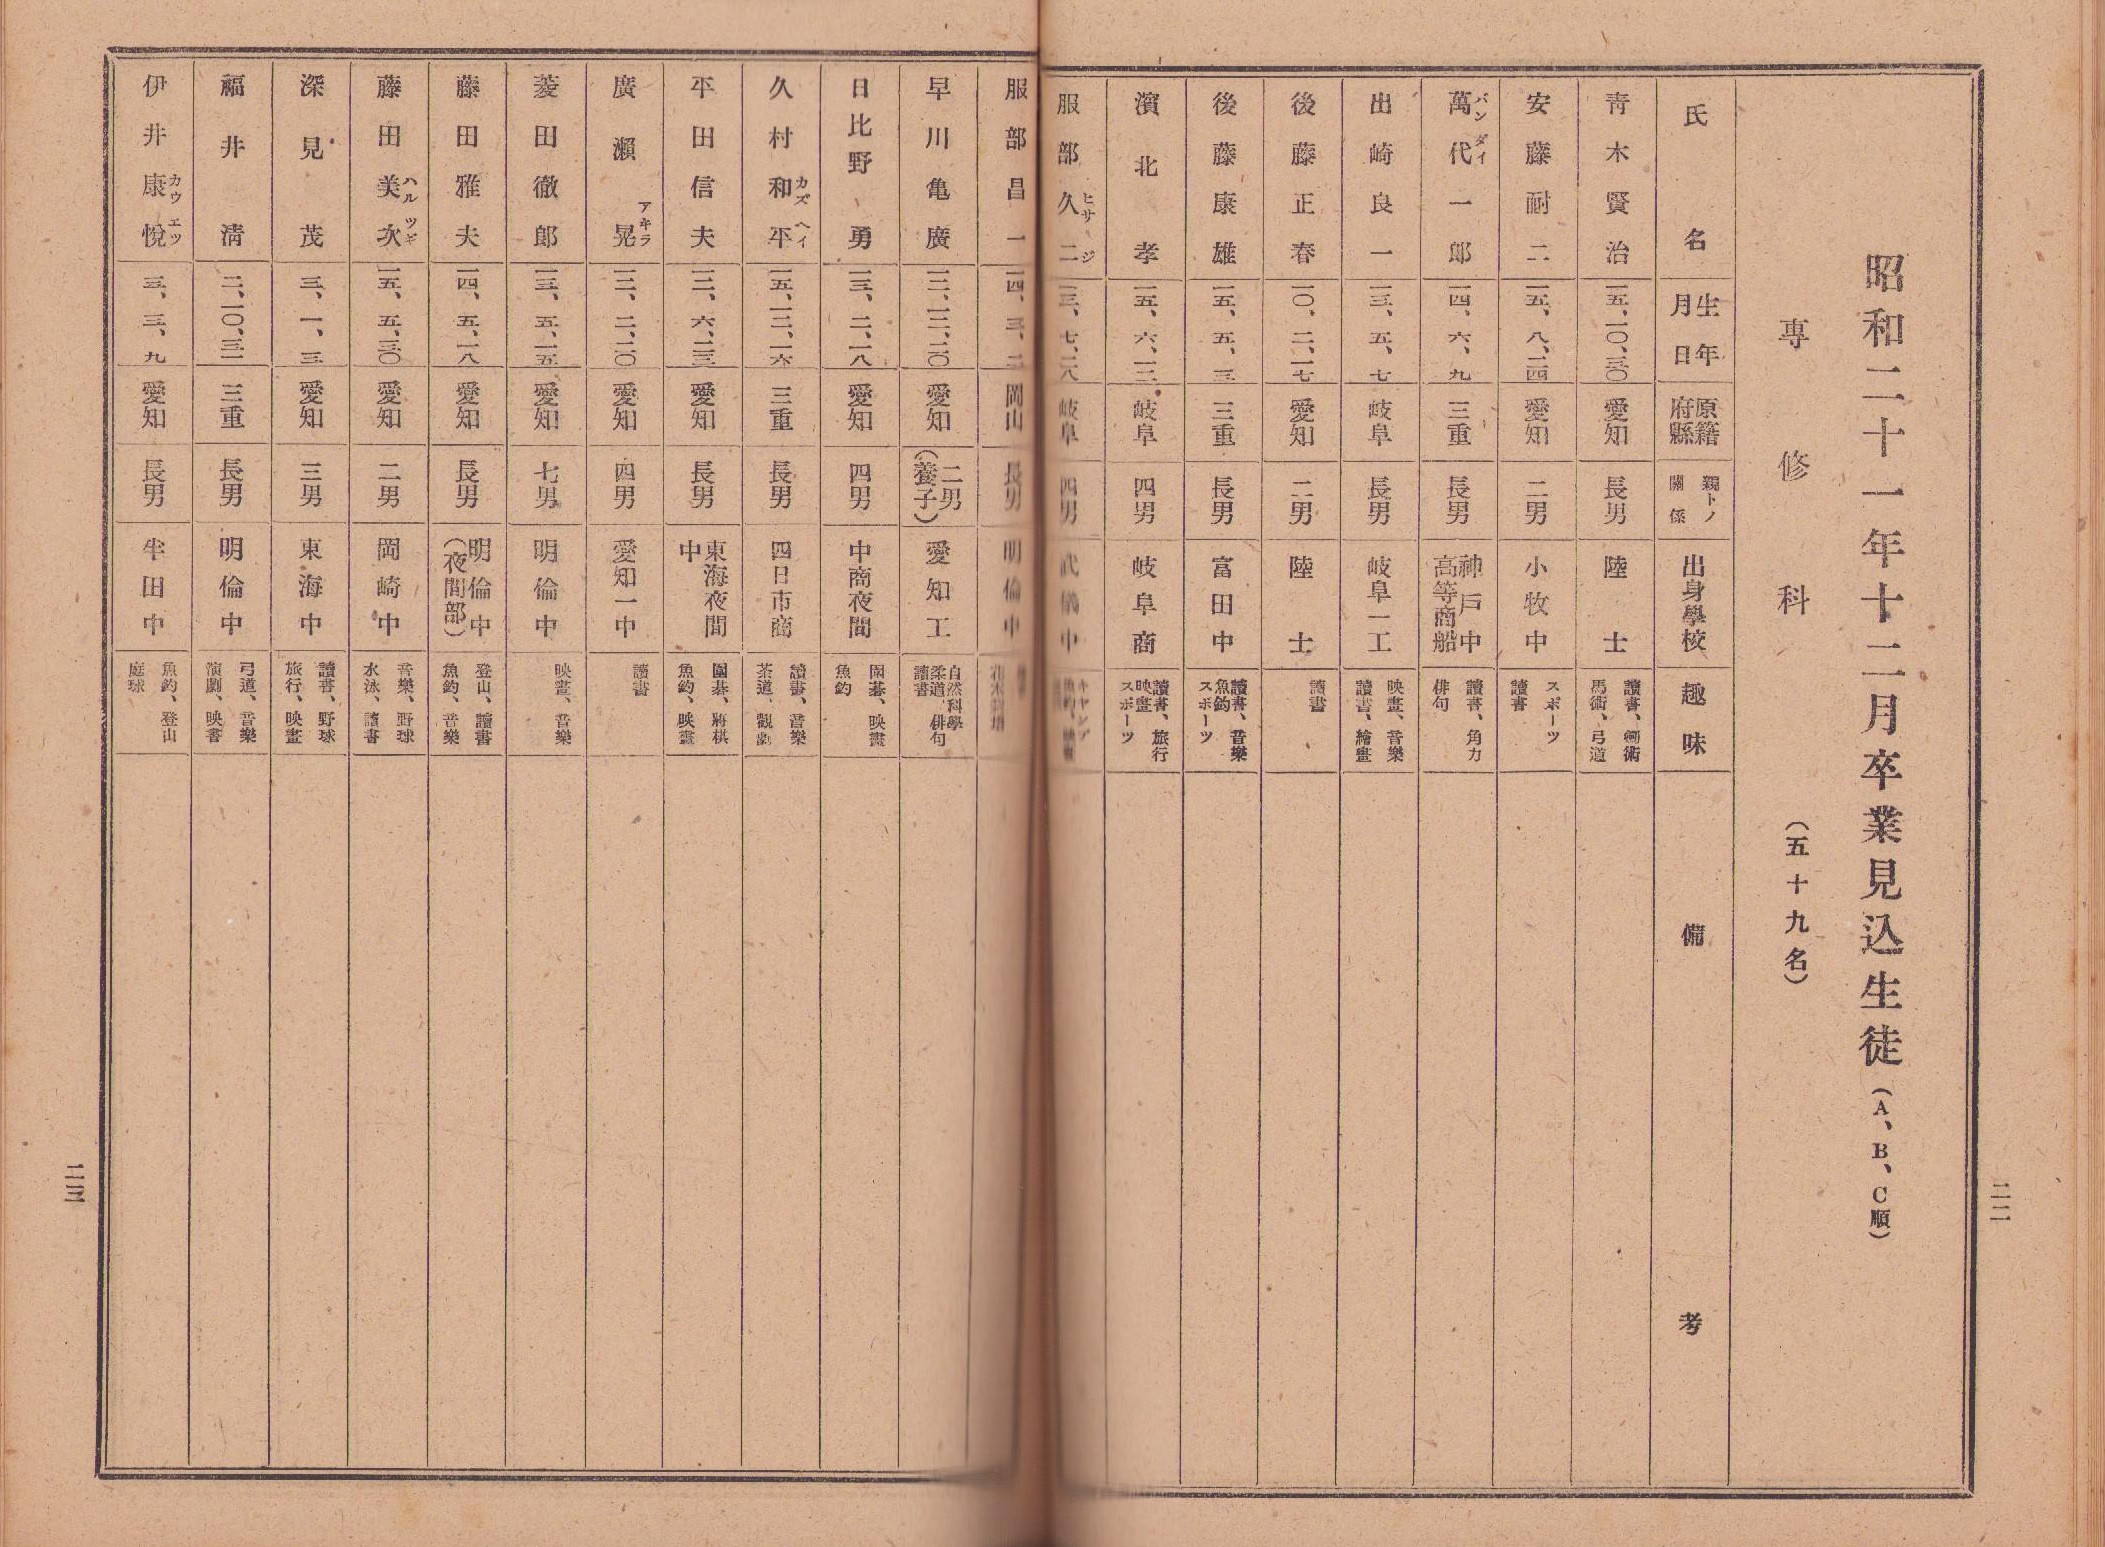 昭和二十一年十二月卒業見込生徒（A、B、C順）
專修科（五十九名）
氏名 生年月日 原籍府縣 親トノ關係 出身學校 趣味 備考
青木賢治 一五、一〇、三〇 愛知 長男 陸士 讀書、劍術 馬術、弓道
安藤耐二 一五、八、二四 愛知 二男 小牧中 スポーツ 讀書
萬代一郎 バンダイ 一四、六、九 三重 長男 神戸中 高等商船 讀書、角力 俳句
出崎良一 一三、五、七 岐阜 長男 岐阜一工 映畫、音樂 讀書、繪畫
後藤正春 一〇、二、一七 愛知 二男 陸士 讀書
後藤康雄 一五、五、三 三重 長男 富田中 讀書、音樂 魚釣 スポーツ
濱北孝 一五、六、一二 岐阜 四男 岐阜商 讀書、旅行 映畫 スポーツ
服部久二 ヒサジ 一三、七、二八 岐阜 四男 武儀中 キャンプ
二二
服部昌一 一四、三、二 岡山 長男 明倫中
早川亀廣 一二、一二、二〇 愛知 二男（養子） 愛知工 自然科學 柔道、俳句 讀書
日比野勇 一三、二、一八 愛知 四男 中商夜間 園碁、映畫 魚釣
久村和平 カズヘイ 一五、一二、一六 三重 長男 四日市商 讀書、音樂 茶道、觀劇
平田信夫 一二、六、二三 愛知 長男 東海夜間中 園碁、將棋 魚釣、映畫
廣瀬晃 アキラ 一二、二、二〇 愛知 四男 愛知一中 讀書
菱田徹郎 一三、五、一五 愛知 七男 明倫中 映畫、音樂
藤田雅夫 一四、五、一八 愛知 長男 明倫中（夜間部） 登山、讀書 魚釣、音樂
藤田美次 ハルツギ 一五、五、三〇 愛知 二男 岡崎中 音樂、野球 水泳、讀書
深見茂 三、一、三 愛知 三男 東海中 讀書、野球 旅行、映畫
福井清 二、一〇、三一 三重 長男 明倫中 弓道、音樂 演劇、映書
伊井康悦 カウエツ 三、三、九 愛知 長男 半田中 魚釣、登山 庭球
二三